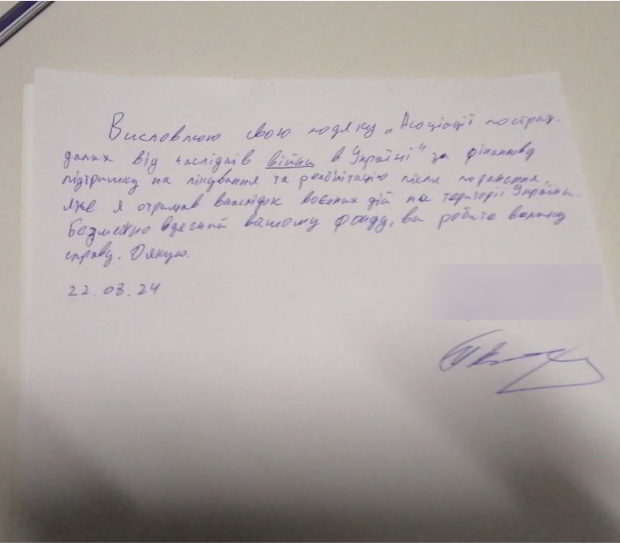 Висловлюю свою подяку „Асоціації постраж-
далих від наслідків війни в Україні" за фінансову
підтримку на лікування та реабілітацію після поранення,
яке я отримав внаслідок воєнних дій на території України.
Безмежно вдячний вашому фонду, ви робите велику
справу. Дякую.
22.08.24